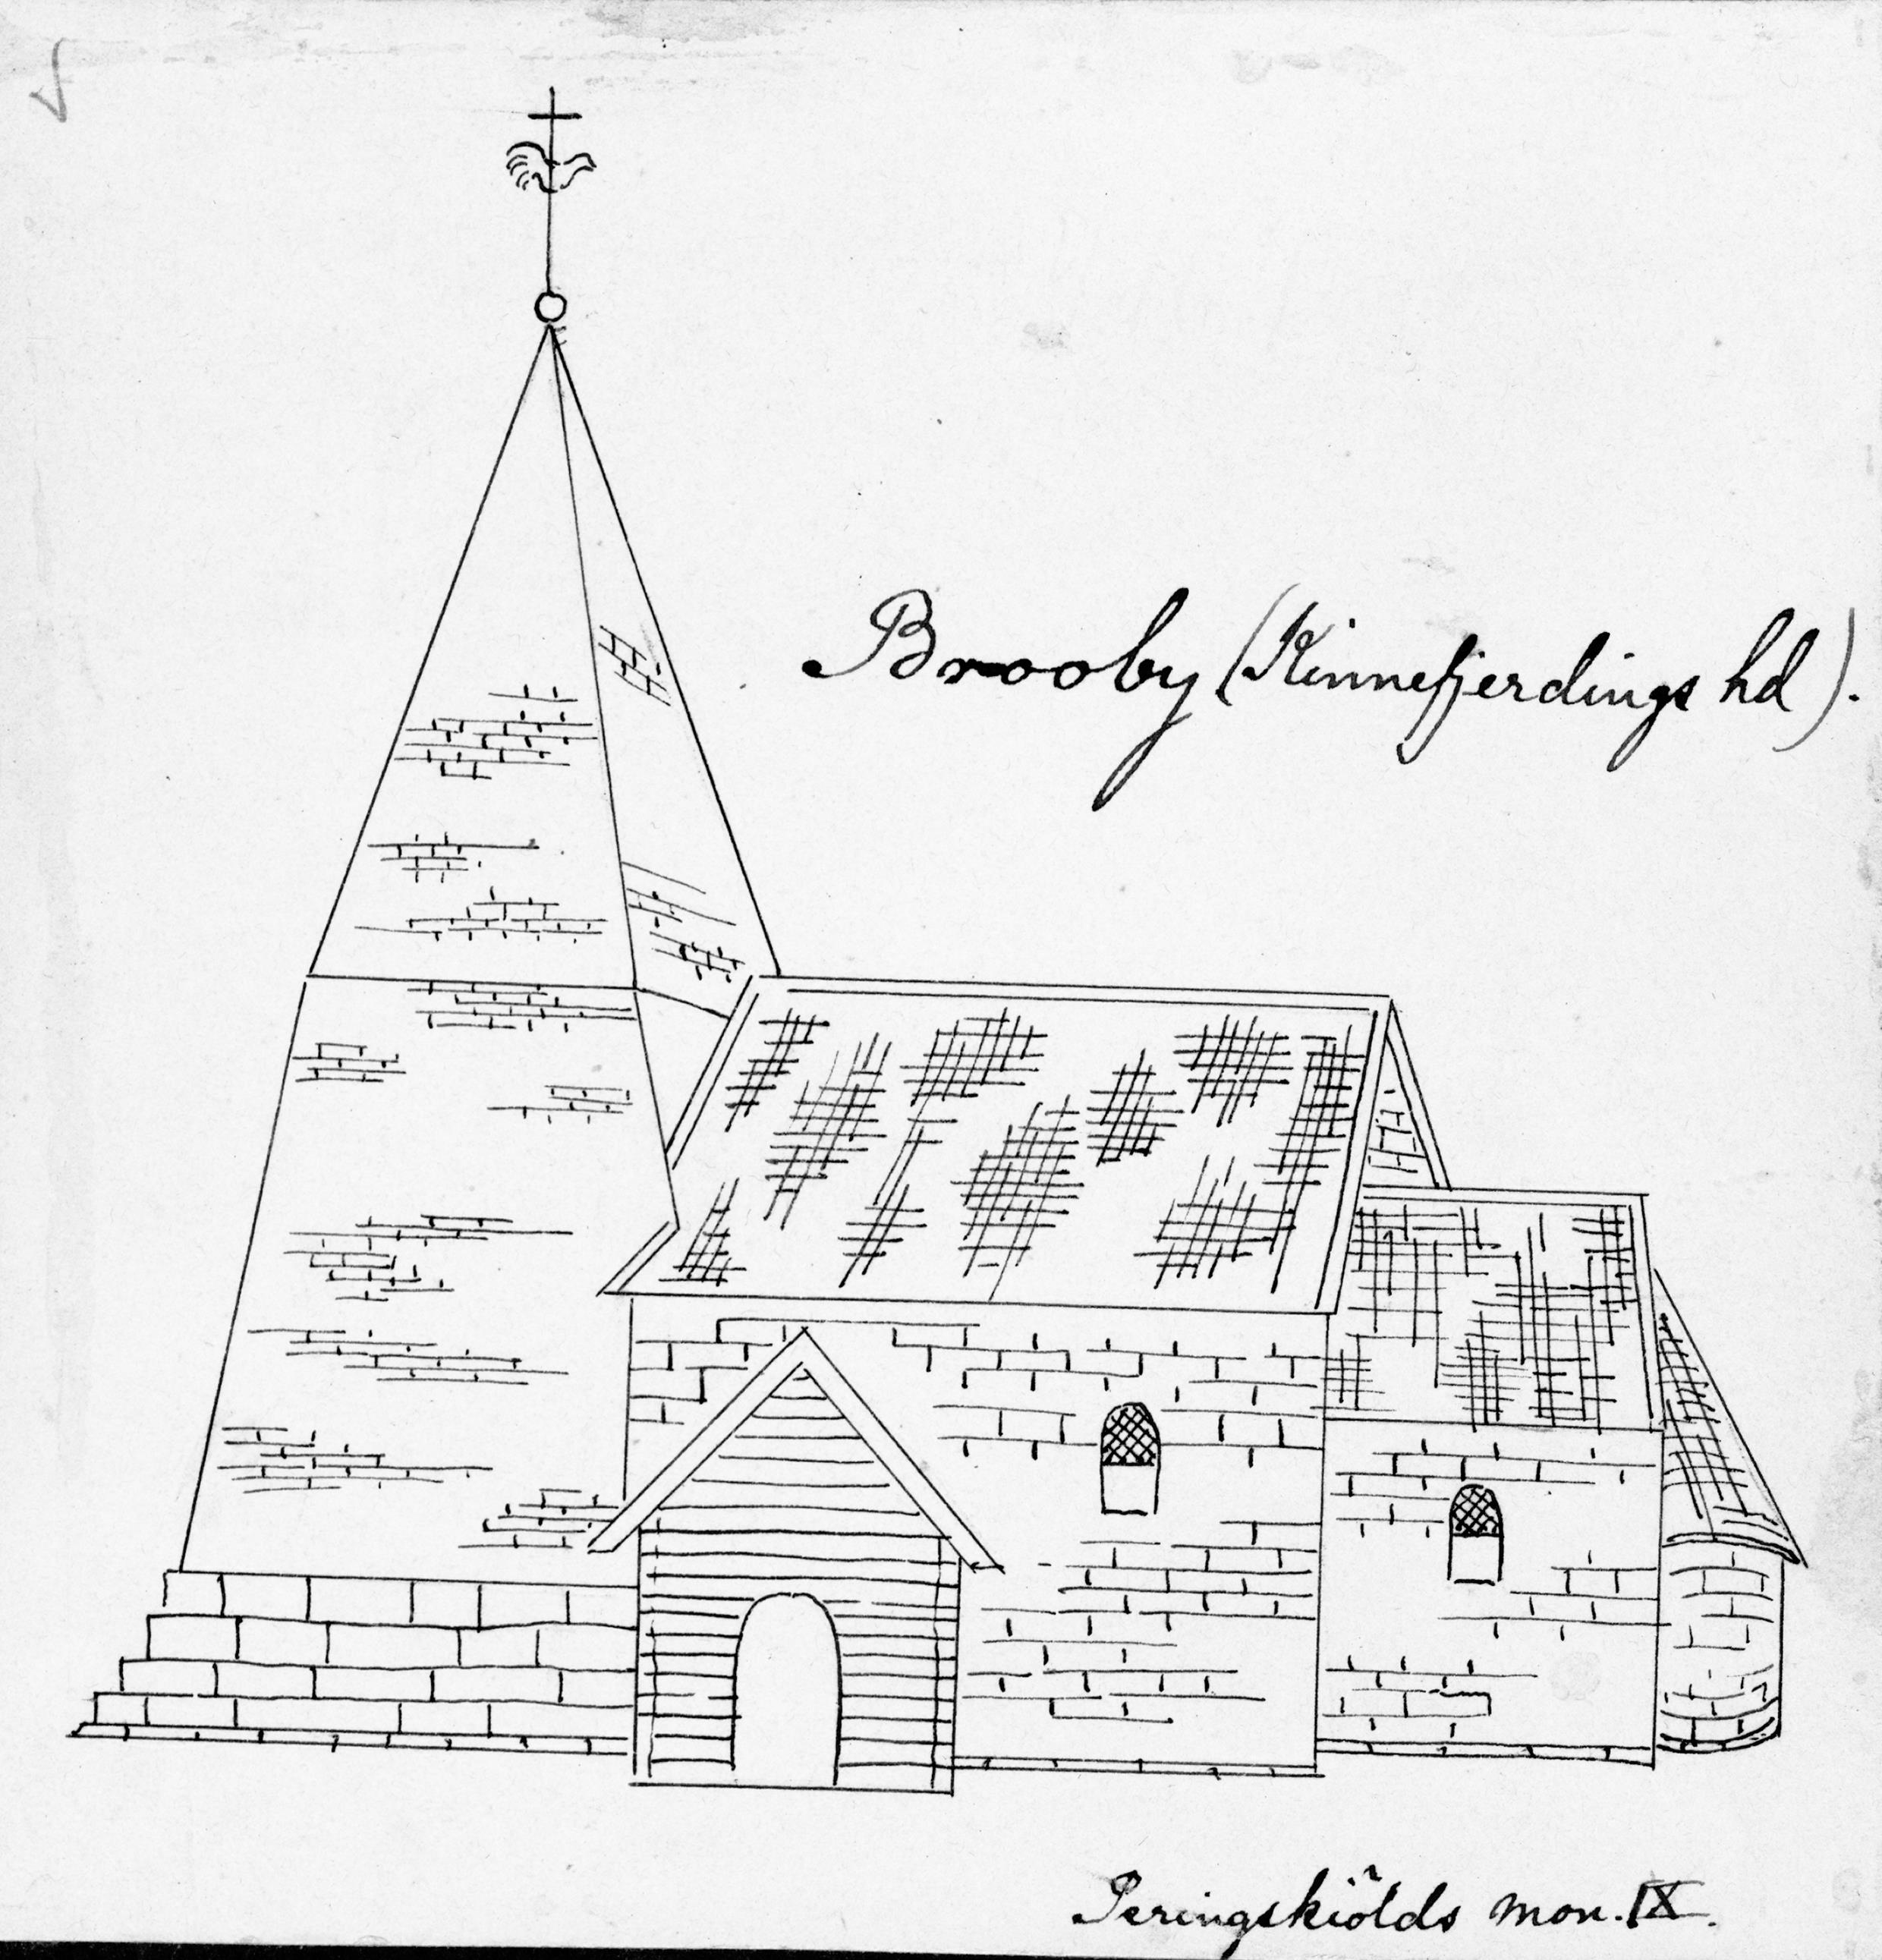 Brooby (Kinnefjerdings hd).
Peringskiölds mon. IX.